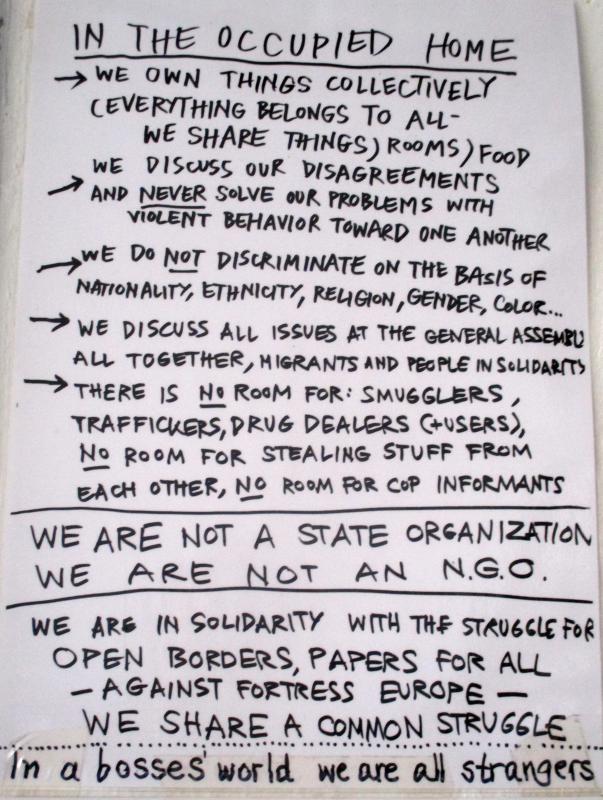 IN THE OCCUPIED HOME
→ WE OWN THINGS COLLECTIVELY
(EVERYTHING BELONGS TO ALL-
WE SHARE THINGS) ROOMS) FOOD
WE DISCUSS OUR DISAGREEMENTS
→ AND NEVER SOLVE OUR PROBLEMS WITH
VIOLENT BEHAVIOR TOWARD ONE ANOTHER
→ WE DO NOT DISCRIMINATE ON THE BASIS OF
NATIONALITY, ETHNICITY, RELIGION, GENDER, COLOR...
→ WE DISCUSS ALL ISSUES AT THE GENERAL ASSEMBLY
ALL TOGETHER, MIGRANTS AND PEOPLE IN SOLIDARITY
→ THERE IS NO ROOM FOR: SMUGGLERS,
TRAFFICKERS, DRUG DEALERS (+USERS),
NO ROOM FOR STEALING STUFF FROM
EACH OTHER, NO ROOM FOR COP INFORMANTS
WE ARE NOT A STATE ORGANIZATION
WE ARE NOT AN N.G.O.
WE ARE IN SOLIDARITY WITH THE STRUGGLE FOR
OPEN BORDERS, PAPERS FOR ALL
- AGAINST FORTRESS EUROPE -
WE SHARE A COMMON STRUGGLE
in a bosses' world we are all strangers